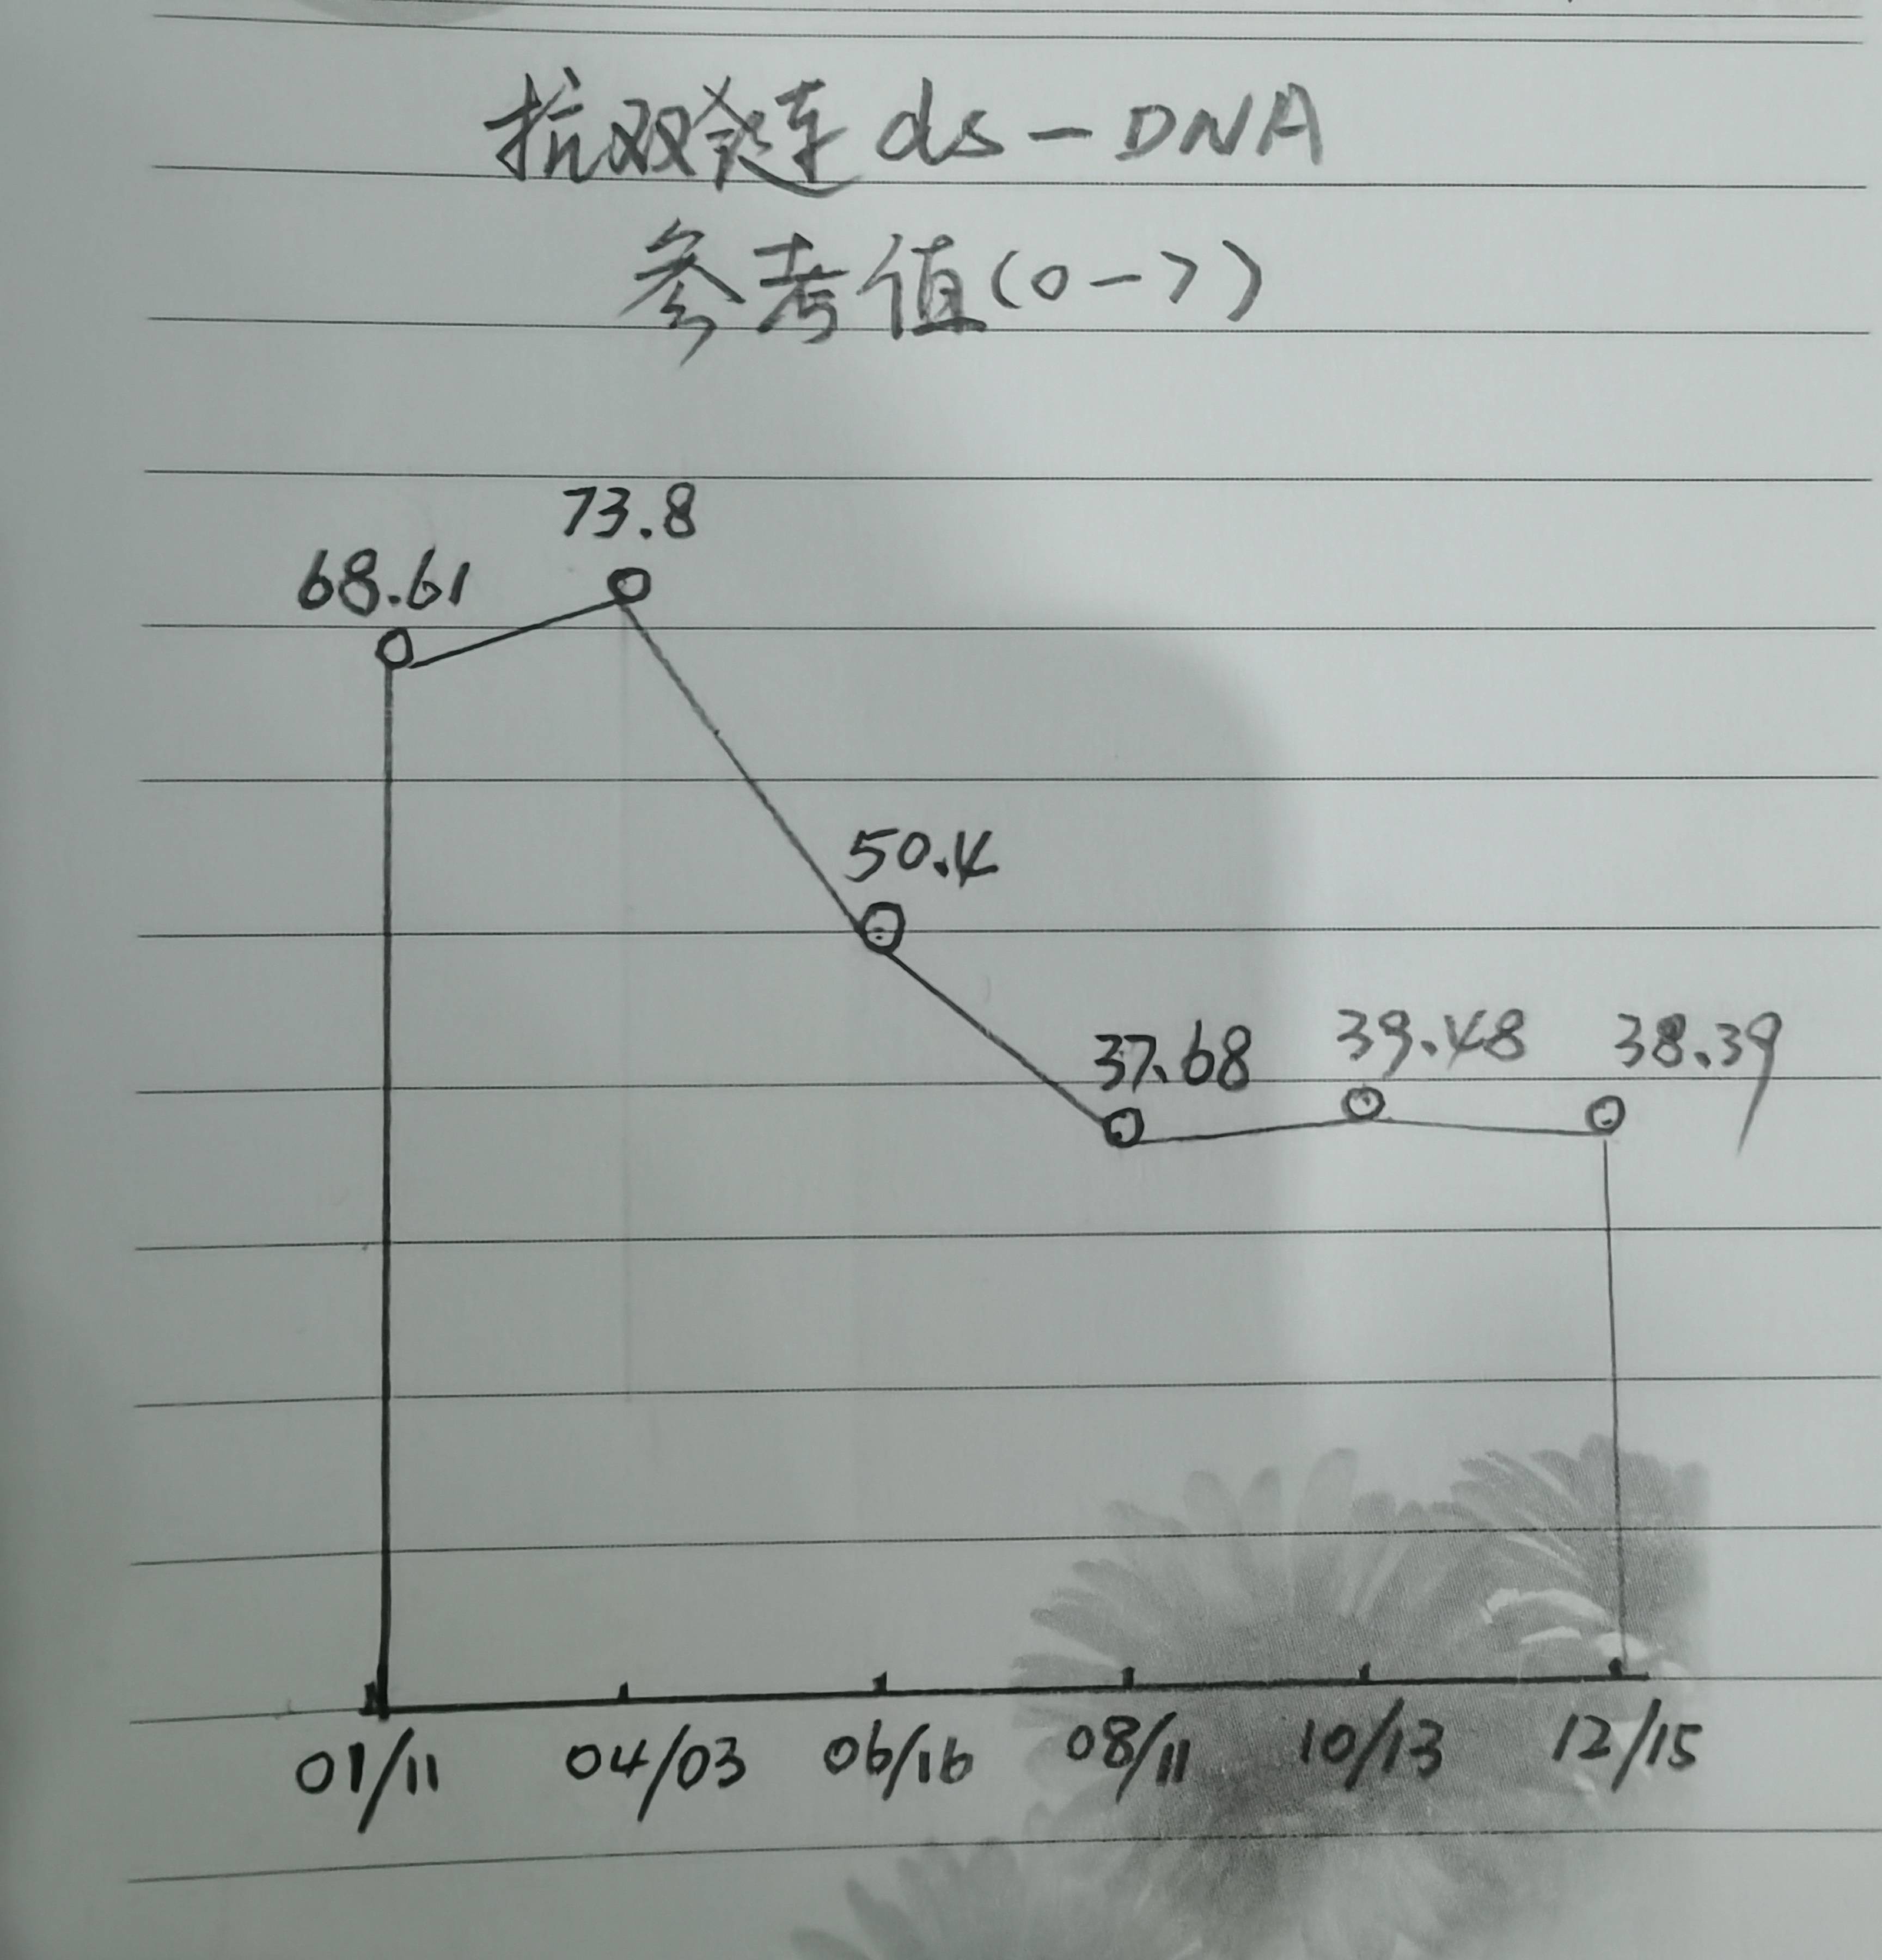 抗双链 ds-DNA
参考值(0-7)
73.8
68.61
50.4
37.68 39.48 38.39
01/11 04/03 06/16 08/11 10/13 12/15